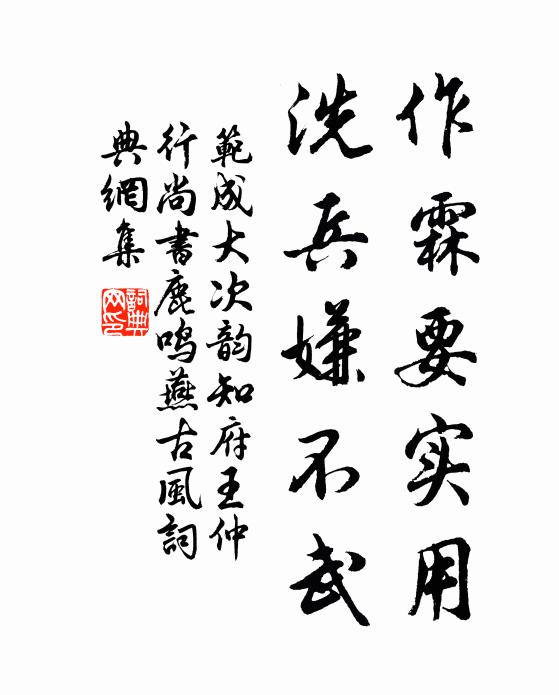 作霖要实用
洗兵嫌不武
範成大次韵知府王仲
行尚書鹿鸣燕古風詞
典網集
詞典
网印